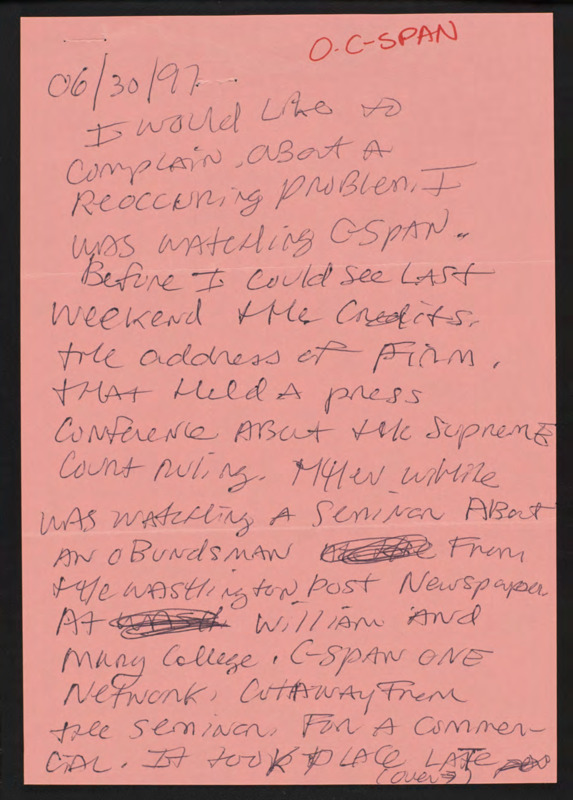 O.C-SPAN
06/30/97
I would like to
complain, about A
Reoccuring problem. I
was watching C-SPAN..
Before I could see LAST
weekend the Credits.
the address of Firm,
that Held A press
Conference About the Supreme
Court ruling. while
was watching A Seminar About
AN oBundsman From
the Washington post Newspaper
At William And
Mary College. C-SPAN ONE
Network, CutAway From
the seminar, For A Commer-
CAL. It took place LATE
(over→)